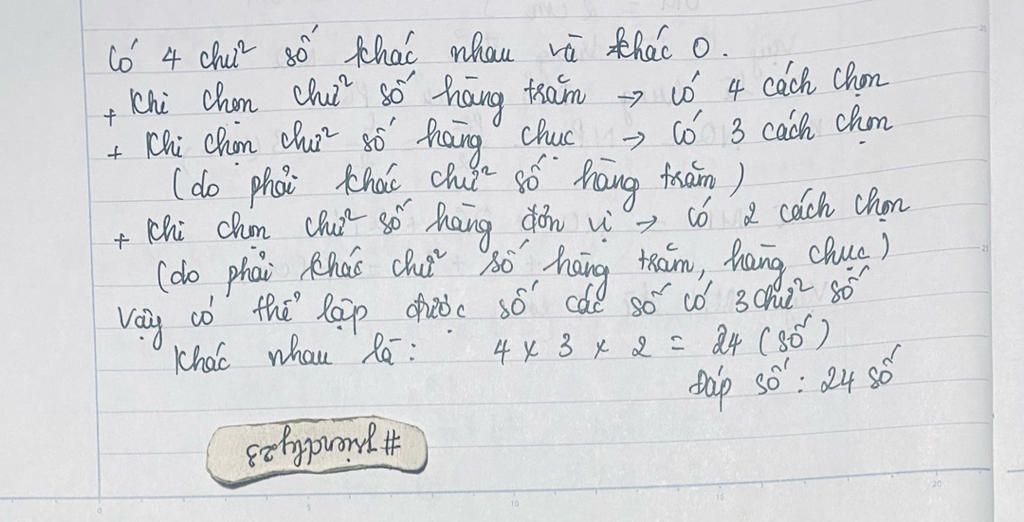 Có 4 chữ số khác nhau và khác 0.
+ Khi chọn chữ số hàng trăm → có 4 cách chọn
+ Khi chọn chữ số hàng chục → có 3 cách chọn
(do phải khác chữ số hàng trăm)
+ Khi chọn chữ số hàng đơn vị → có 2 cách chọn
(do phải khác chữ số hàng trăm, hàng chục)
Vậy có thể lập được số các số có 3 chữ số
khác nhau là: 4 x 3 x 2 = 24 (số)
Đáp số: 24 số
#friendly23
0 5 10 15 20